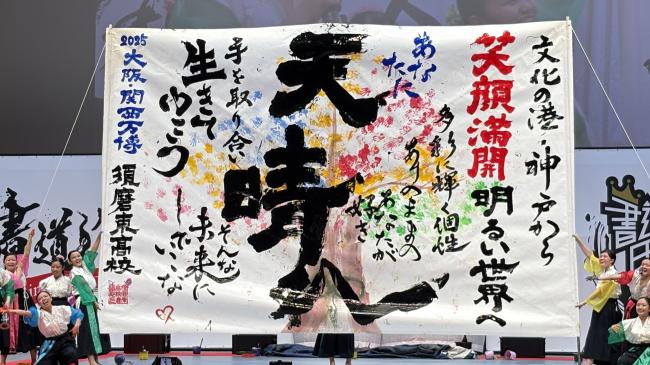 文化の港・神戸から
笑顔満開
明るい世界へ
多彩に輝く個性
ありのままの
あなたが
好き
あなた
天晴
手を取り合い
生きて
ゆこう
そんな
未来に
していこな
2025大阪・関西万博
須磨東高校
書道